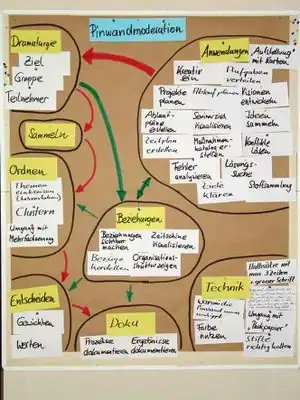 Pinwandmoderation
Dramaturgie
Ziel
Gruppe
Teilnehmer
Sammeln
Ordnen
Themen
einkreisen
Clustern
Umgang mit
Mehrfachnennung
Entscheiden
Gewichten
Werten
Anwendungen
"Aufstellung"
mit Karten
Kreativ
sein
Aufgaben
verteilen
Projekte
planen
Ablauf planen
Visionen
entwickeln
Ablauf-
pläne
erstellen
Seminarziel
visualisieren
Ideen
sammeln
Zeitplan
erstellen
Maßnahmen-
katalog er-
stellen
Konflikte
lösen
Fehler
analysieren
Lösungs-
suche
Ziele
klären
Stoffsammlung
Beziehungen
Beziehungen
sichtbar
machen
Zeitschiene
visualisieren
Bezüge
herstellen
Organisations-
struktur zeigen
Doku
Prozesse
dokumentieren
Ergebnisse
dokumentieren
Technik
Halbsätze mit
max. 3 Zeilen
+ grosser Schrift
Farbe
nutzen
Umgang mit
"Packpapier"
Stifte
richtig halten